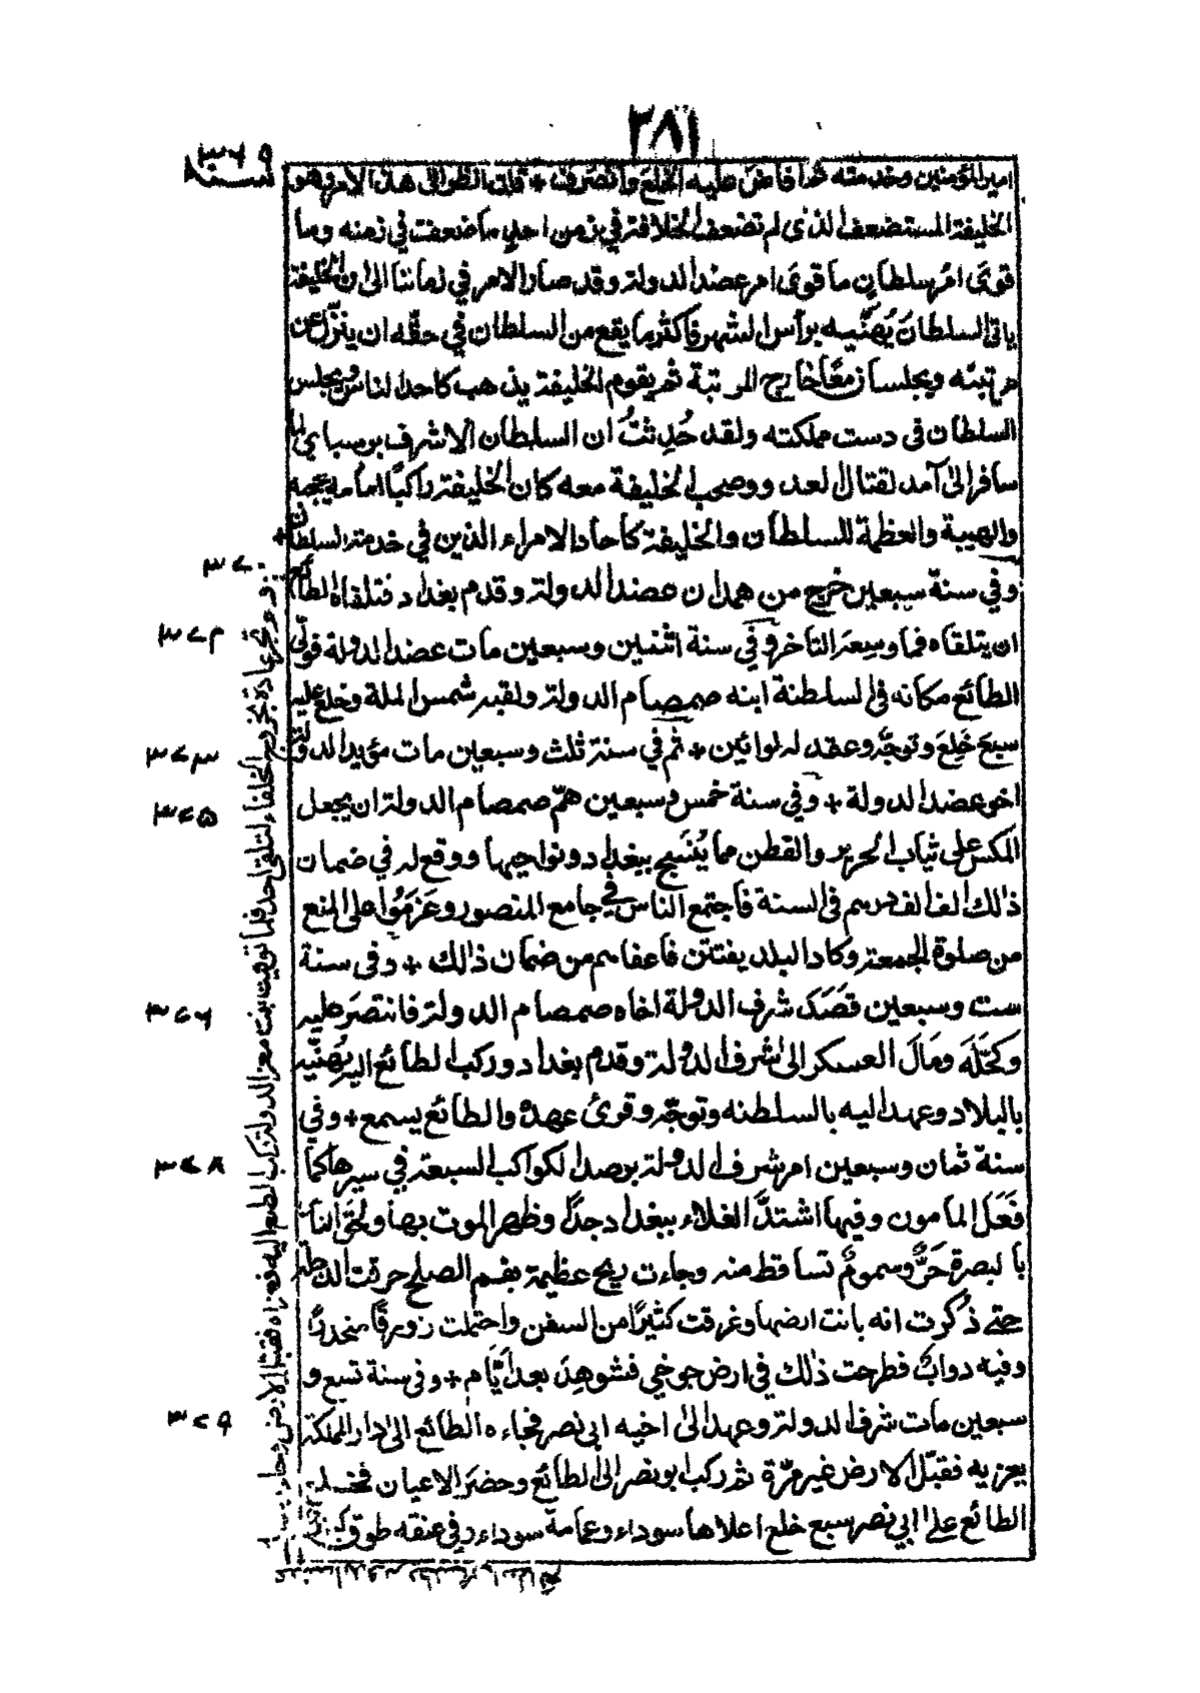 ٢٨١
سنة ٣٦٩
امير المؤمنين وخدمته ثم افاض عليه الخلع وانصرف + فانظر الى هذا الامر وهو
الخليفة المستضعف الذى لم تضعف الخلافة فى زمن احد ما ضعفت فى زمنه وما
قوىَ امر سلطان ما قوىَ امر عضد الدولة وقد صار الامر فى زماننا الى ان الخليفة
ياتى السلطان يُهنّيه برأس الشهر فاكثر ما يقع من السلطان فى حقه ان ينزل عن
مرتبته ويجلسا معًا خارج المرتبة ثم يقوم الخليفة يذهب كاحد الناس ويجلس
السلطان فى دست مملكته ولقد حُدِثتُ ان السلطان الاشرف برسباى لما
سافر الى آمد لقتال العدو وصحب الخليفة معه كان الخليفة راكبًا امامه يحجبه
والهيبة والعظمة للسلطان والخليفة كآحاد الامراء الذين فى خدمة السلطان +
٣٧٠
وفى سنة سبعين خرج من همدان عضد الدولة وقدم بغداد فتلقاه الطائع
٣٧٢
ان يتلقاه فما وسعه التاخر وفى سنة اثنتين وسبعين مات عضد الدولة فولّى
الطائع مكانه فى السلطنة ابنه صمصام الدولة ولقبه شمس الملة وخلع عليه
٣٧٣
سبعَ خَلِعَ وتوجّه وعقد له لوائين + ثم فى سنة ثلث وسبعين مات مؤيد الدولة
٣٧٥
اخو عضد الدولة + وفى سنة خمس وسبعين همّ صمصام الدولة ان يجعل
المكس على ثياب الحرير والقطن مما يُنسَج ببغداد ونواحيها ووقع له فى ضمان
ذالك الف الف درهم فى السنة فاجتمع الناس فى جامع المنصور وعَزمُوا على المنع
من صلوة الجمعة وكاد البلد يفتتن فاعفاهم من ضمان ذالك + وفى سنة
٣٧٦
ست وسبعين قصَدَ شرف الدولة اخاه صمصام الدولة فانتصرَ عليه
وكحَّلَه ومَالَ العسكر الى شرف الدولة وقدم بغداد وركب الطائع اليه يُهنّئيه
بالبلاد وعهد اليه بالسلطنه وتوجّه وقرئ عهده والطائع يسمع + وفى
٣٧٨
سنة ثمان وسبعين امر شرف الدولة برصد الكواكب السبعة فى سيرها كما
فَعَلَ المامون وفيها اشتدَّ الغلاء ببغداد جدًّا وظهر الموت بها ولحق الناس
بالبصرة حَرٌّ وسمومٌ تساقط منه وجاءت ريح عظيمة بفم الصلح حرقت الدجلة
حتى ذُكرت انه بانت ارضها وغرقت كثيرًا من السفن واحتملت زورقًا منحدرًا
وفيه دوابّ فطرحت ذالك فى ارض جوخى فشوهدَ بعد ايّام + وفى سنة تسع و
٣٧٩
سبعين مات شرف الدولة وعهد الى اخيه ابى نصر فجاءه الطائع الى دار المملكة
يعزيه فقبّل الارض غير مرّة ثم ركب ابو نصر الى الطائع وحضرَ الاعيان فخلع
الطائع على ابى نصر سبع خلع اعلاها سوداء وعمامة سوداء وفى عنقه طوق
ولم تجر عادة بخروج الخلفاء لتلقى احد فلما توفيت بنت معز الدولة ركب المطيع اليه فعزاه فقبّل الارض وجاء